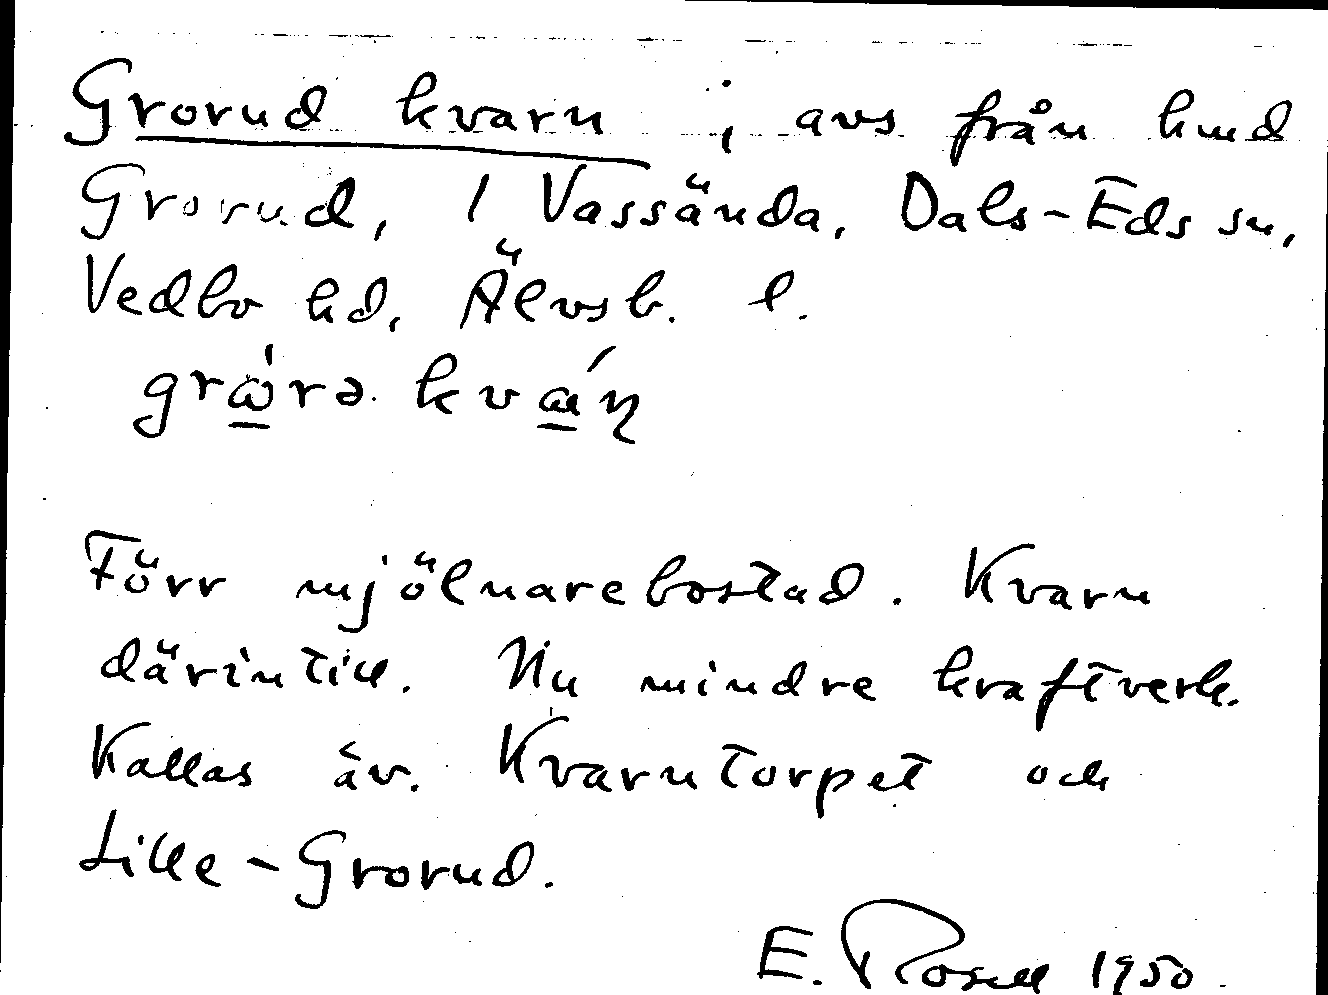 Grorud kvarn ; avs från hmd
Grorud, 1 Vassända, Dals-Eds sn,
Vedbo hd, Älvsb. l.
grὼ̲rə kvά̲ɳ
Förr mjölnarebostad. Kvarn
därintill. Nu mindre kraftverk.
Kallas äv. Kvarntorpet och
Lille-Grorud.
E. Rosell 1950.